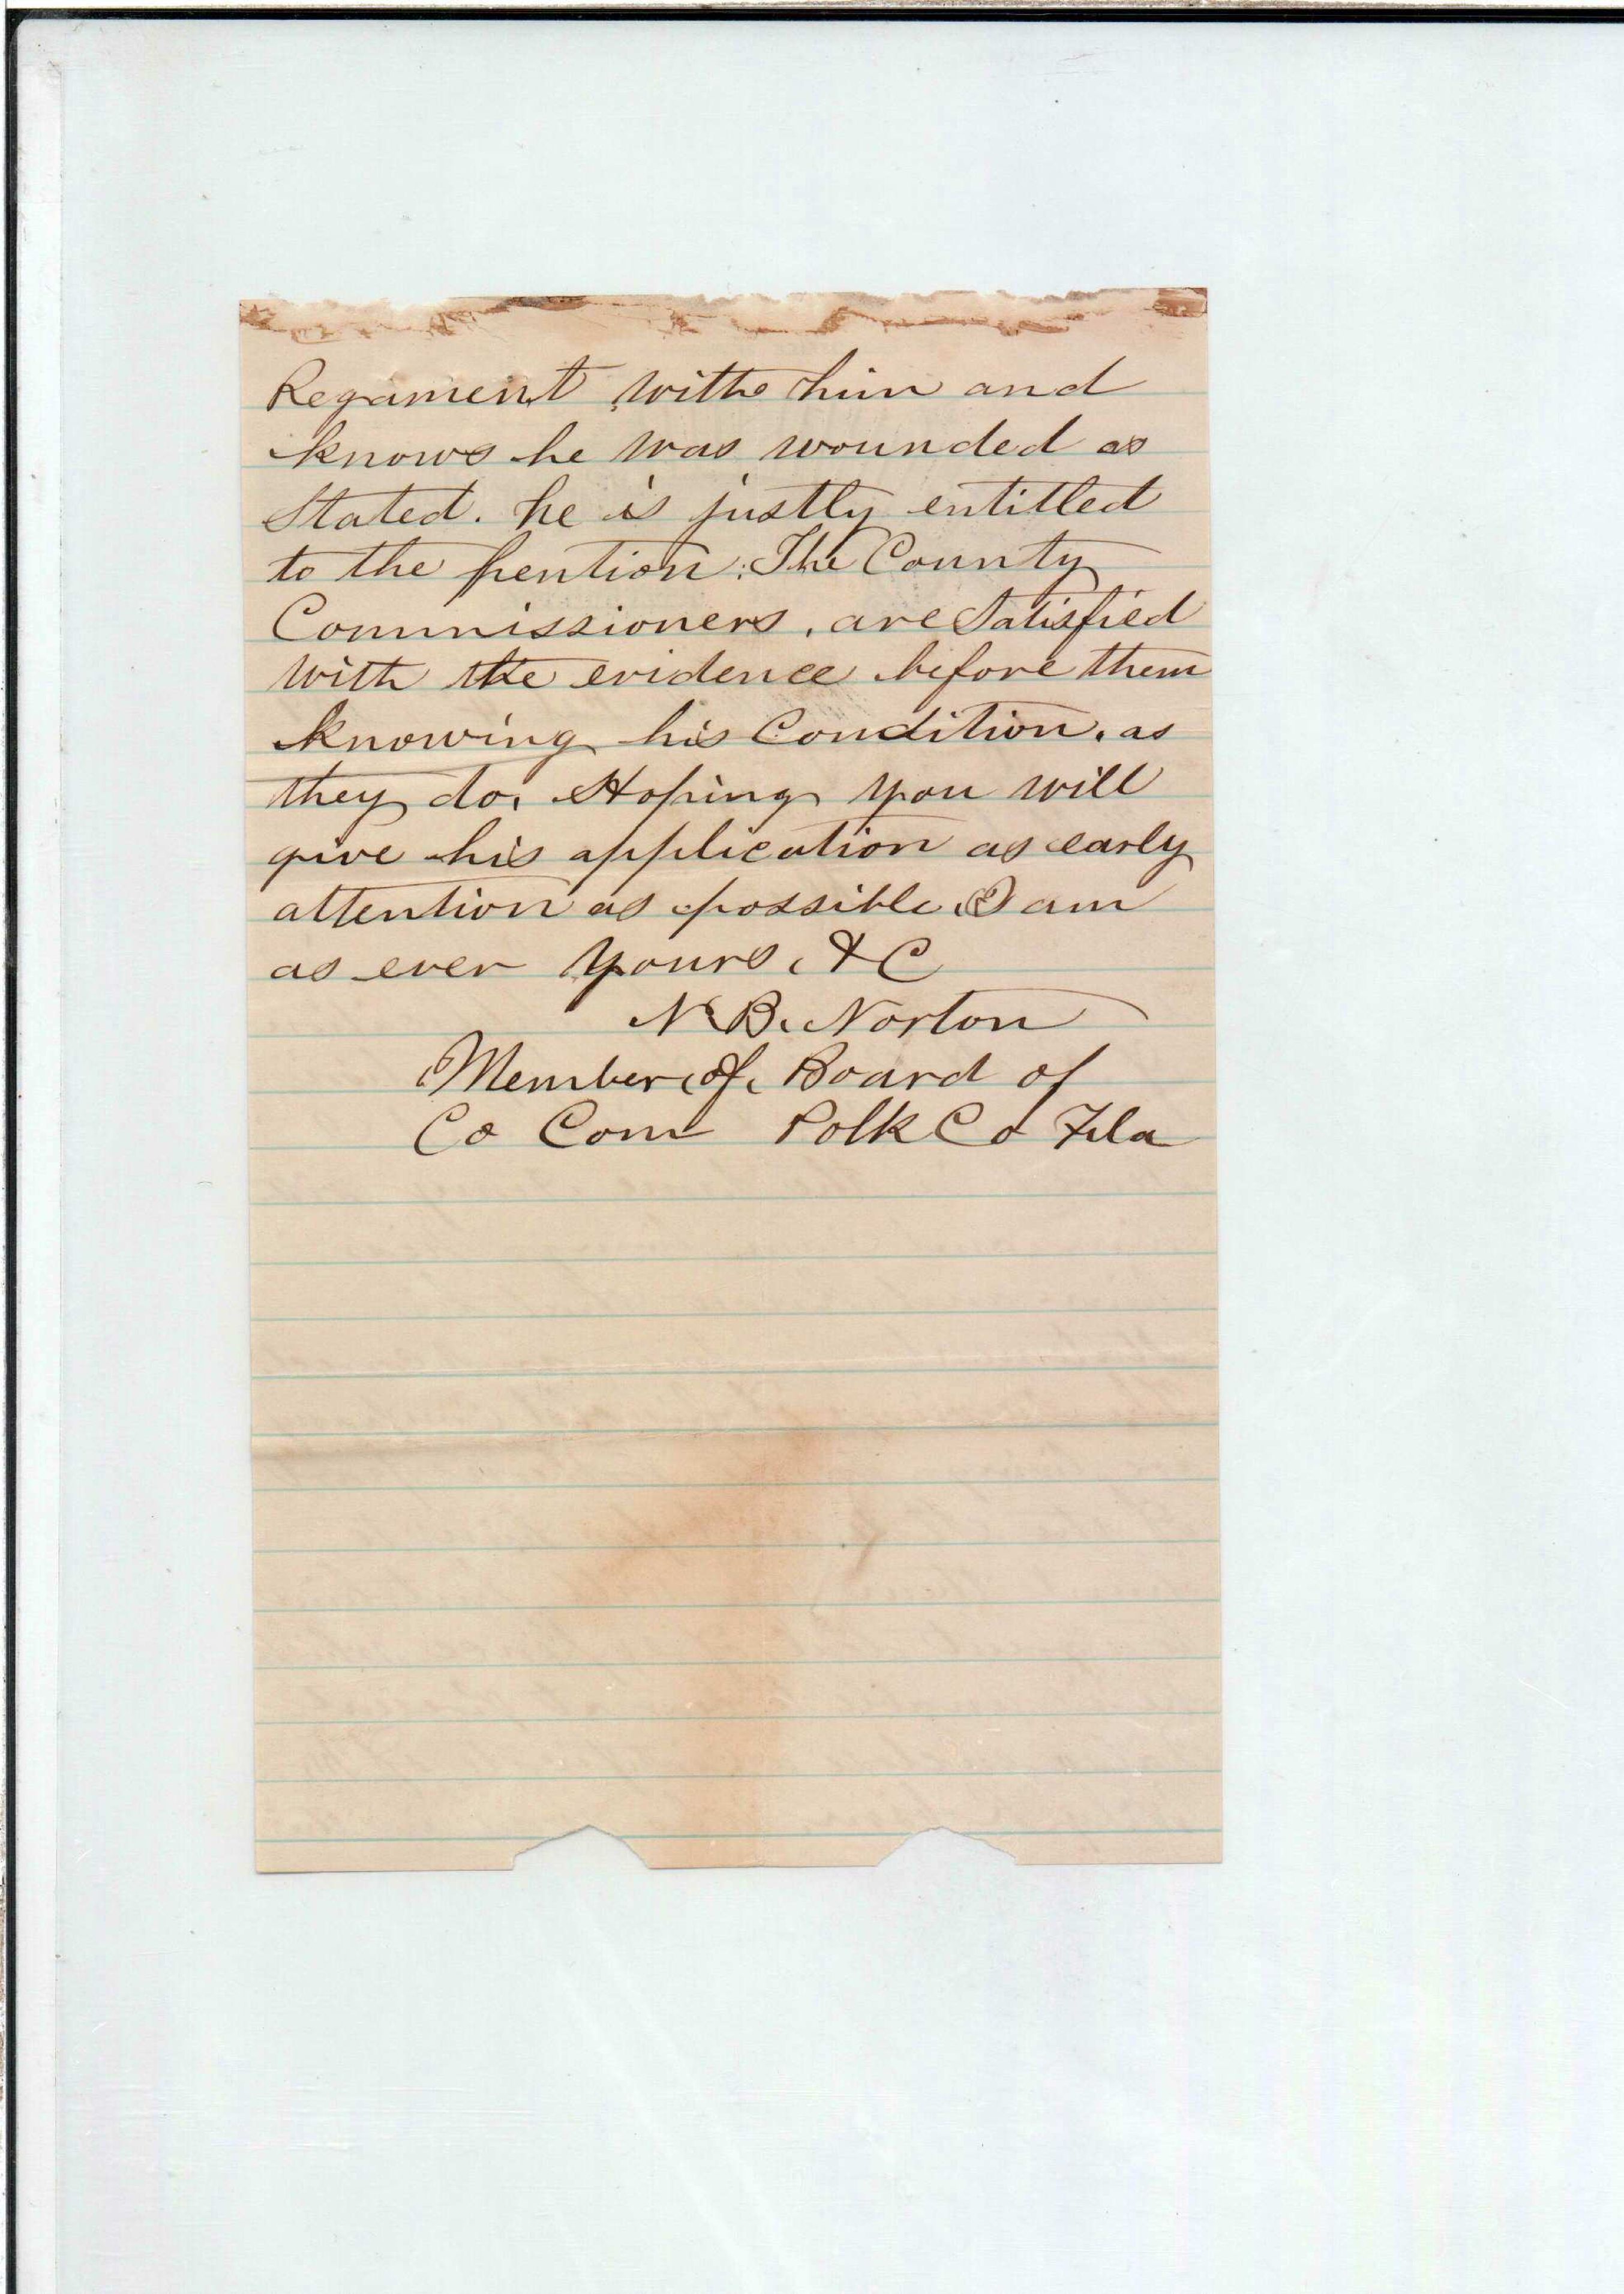 Regament withe him and
knows he was wounded as
Stated. he is justly entitled
to the pention. The County
Commissioners, are Satisfied
with the evidence before them
knowing his Condition, as
they do. Hoping you will
give his application as early
attention as possible, I am
as ever yours, &C
N. B. Norton
Member, of, Board of
Co Com Polk Co Fla